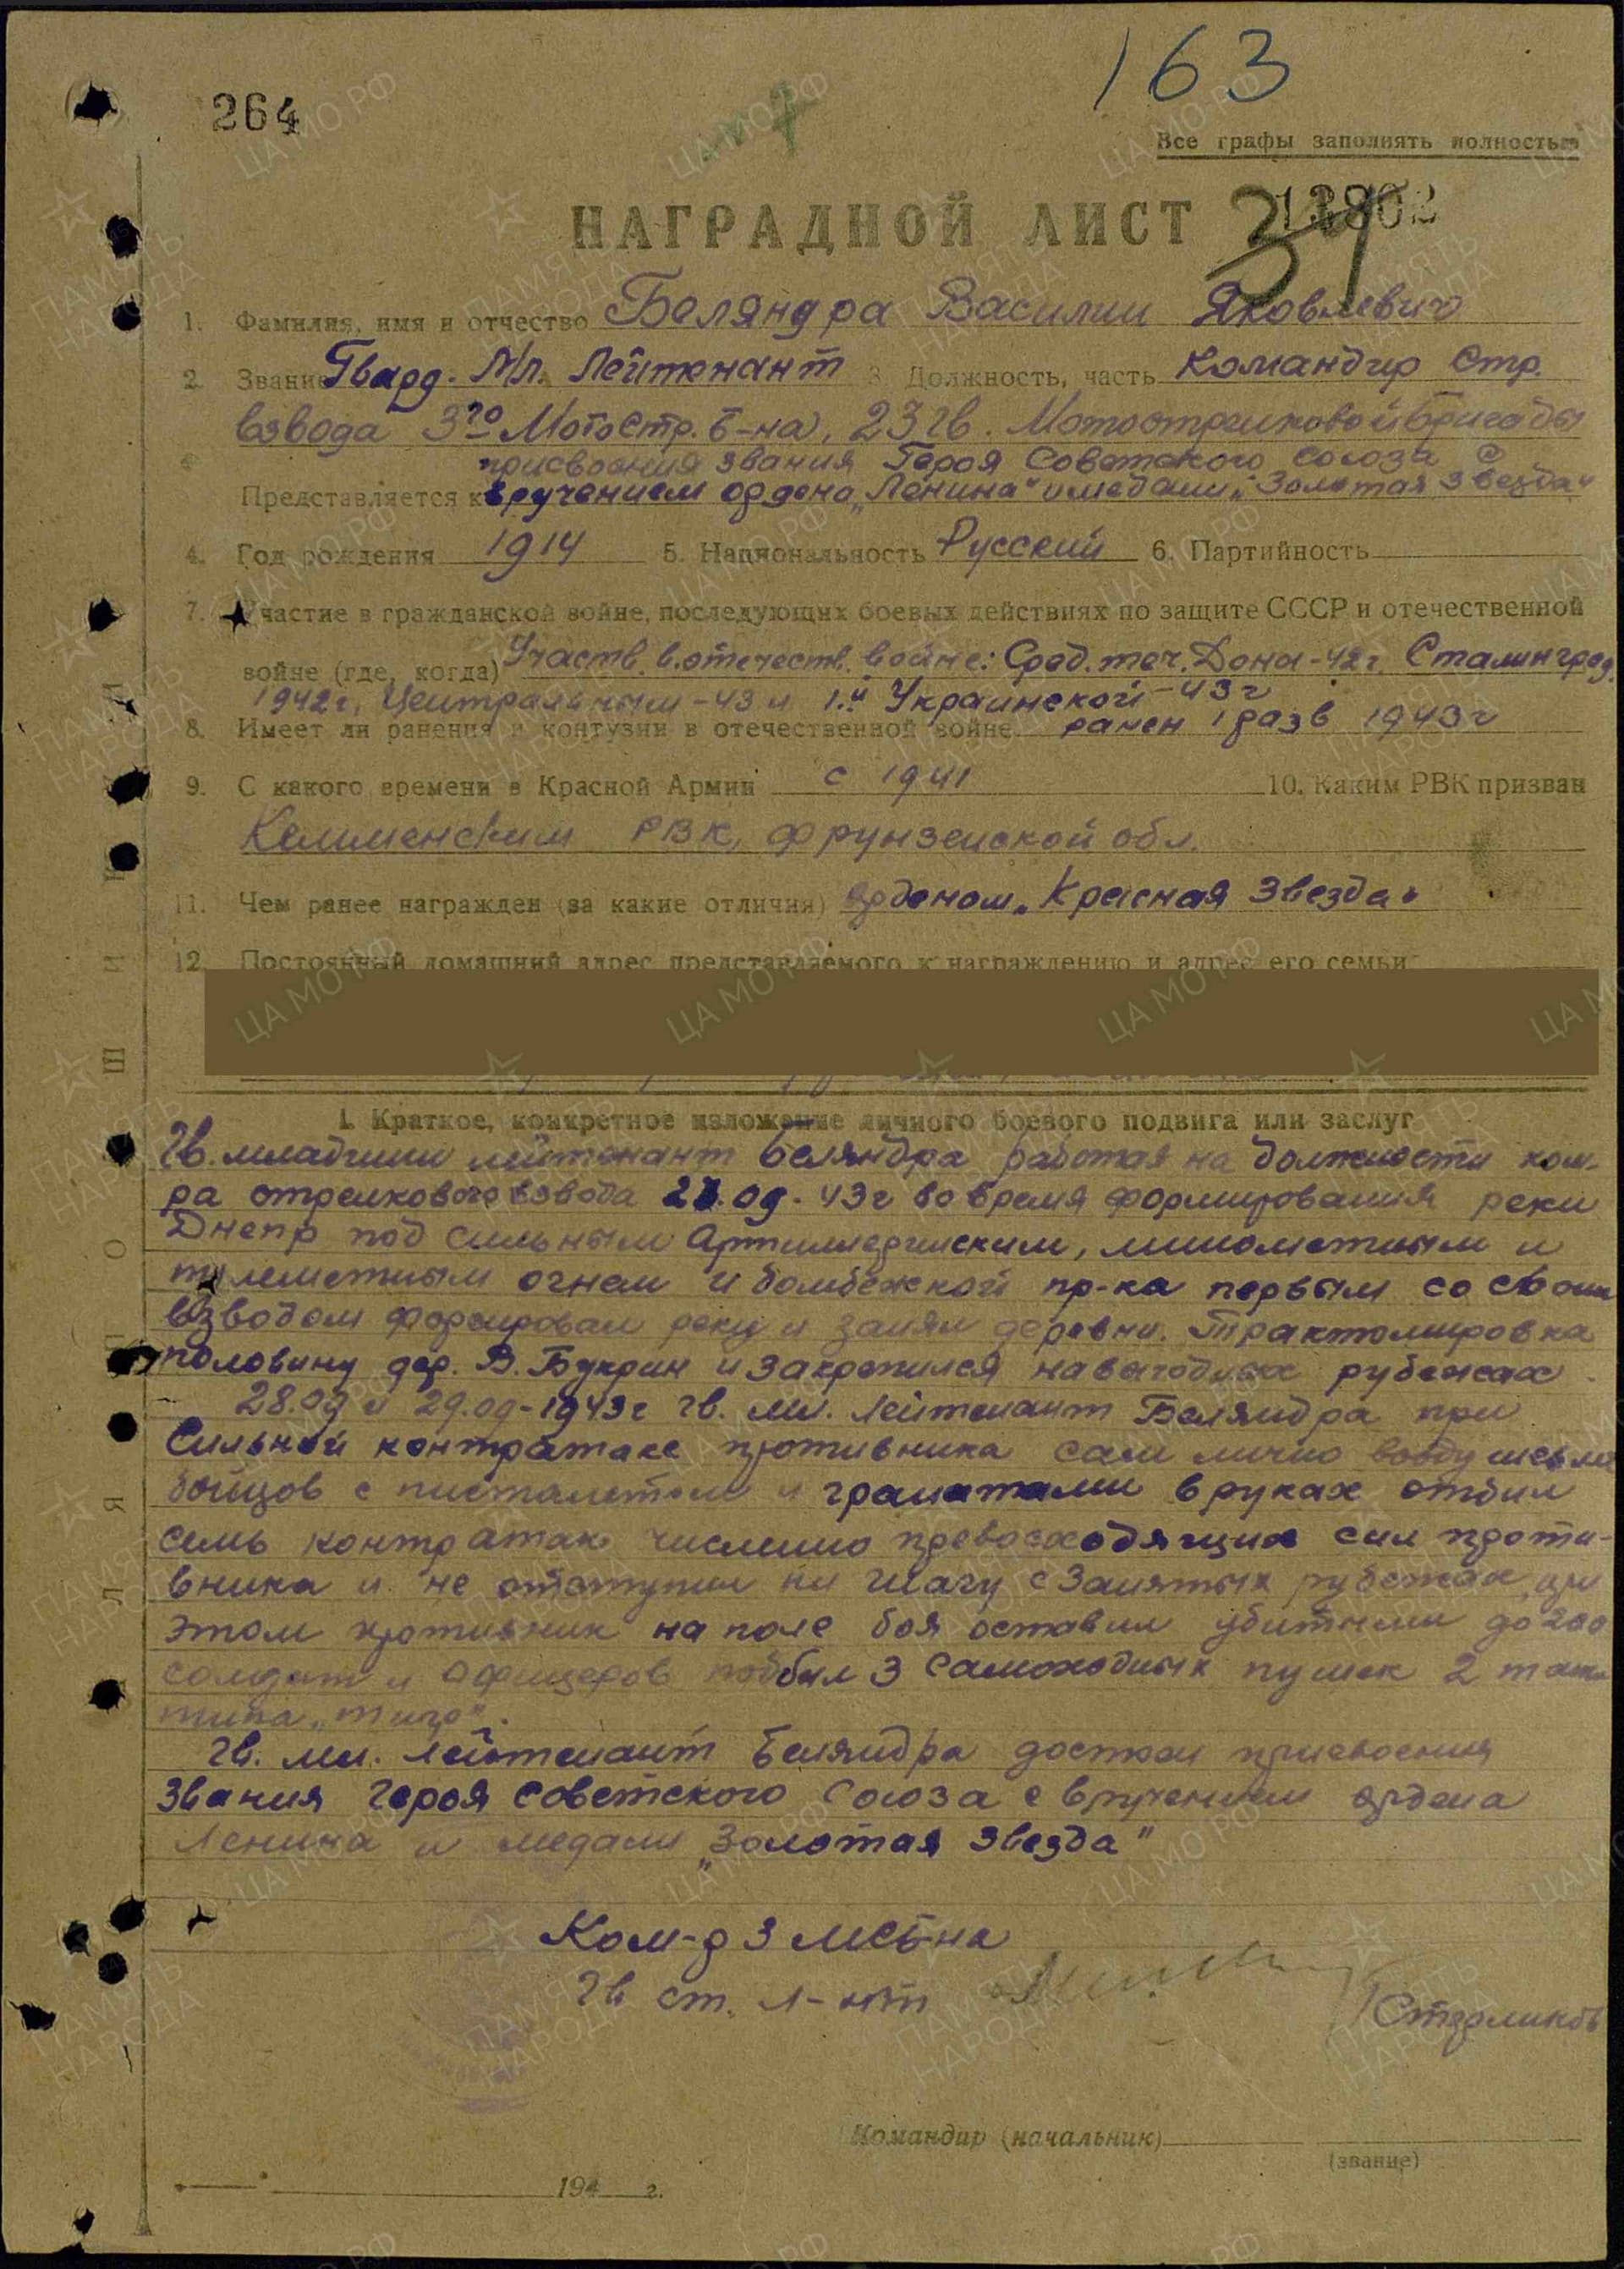 163
264
Все графы заполнять полностью
НАГРАДНОЙ ЛИСТ
1. Фамилия, имя и отчество Беляндра Василии Яковлевич
2. Звание Гвард. Мл. Лейтенант 3 Должность, часть Командир Стр.
взвода 3го Мотостр. б-на, 23 гв. Мотострелковой бригады
присвоения звания Героя Советского Союза с
Представляется к вручением ордена „Ленина" и медали „Золотая Звезда"
4. Год рождения 1914 5. Национальность Русский 6. Партийность
7. Участие в гражданской войне, последующих боевых действиях по защите СССР и отечественной
войне (где, когда) Участв. в отечеств. войне: Сред. теч. Дона-42г. Сталинград
1942г, Центральным-43 и 1.й Украинской-43г
8. Имеет ли ранения и контузии в отечественной войне ранен 1 раз в 1943г
9. С какого времени в Красной Армии с 1941 10. Каким РВК призван
РВК, Фрунзенской обл.
11. Чем ранее награжден (за какие отличия) орденом „Красная Звезда"
12. Постоянный домашний адрес представляемого к награждению и адрес его семьи
1. Краткое, конкретное изложение личного боевого подвига или заслуг
Гв. младшии лейтенант Беляндра работая на должности ком-
ра стрелкового взвода .09-43г во время формирования реки
Днепр под сильным Артиллерииским, минометным и
пулеметным огнем и бомбежкой пр-ка первым со своим
взводом форсировал реку и занял деревни. Трактомировка
половину дер. В. Букрин и закрепился на выгодных рубежах.
28.09 и 29.09-1943г гв. мл. Лейтенант Беляндра при
Сильной контратаке противника сам лично
бойцов с пистолетом и гранатами в руках отбил
семь контратак численно превосходящих сил проти-
вника и не отступил ни шагу с занятых рубежах, при
этом противник на поле боя оставил убитыми до 200
солдат и офицеров подбил 3 самоходных пушек 2 танка
типа „тигр".
Гв. мл. Лейтенант Беляндра достоен присвоения
Звания Героя Советского Союза с вручением ордена
Ленина и медали „Золотая Звезда"
Ком-р 3 мсб-на
Гв ст. л-нт
Командир (начальник)
(звание)
194 г.
ЦА МО РФ
ПАМЯТЬ НАРОДА